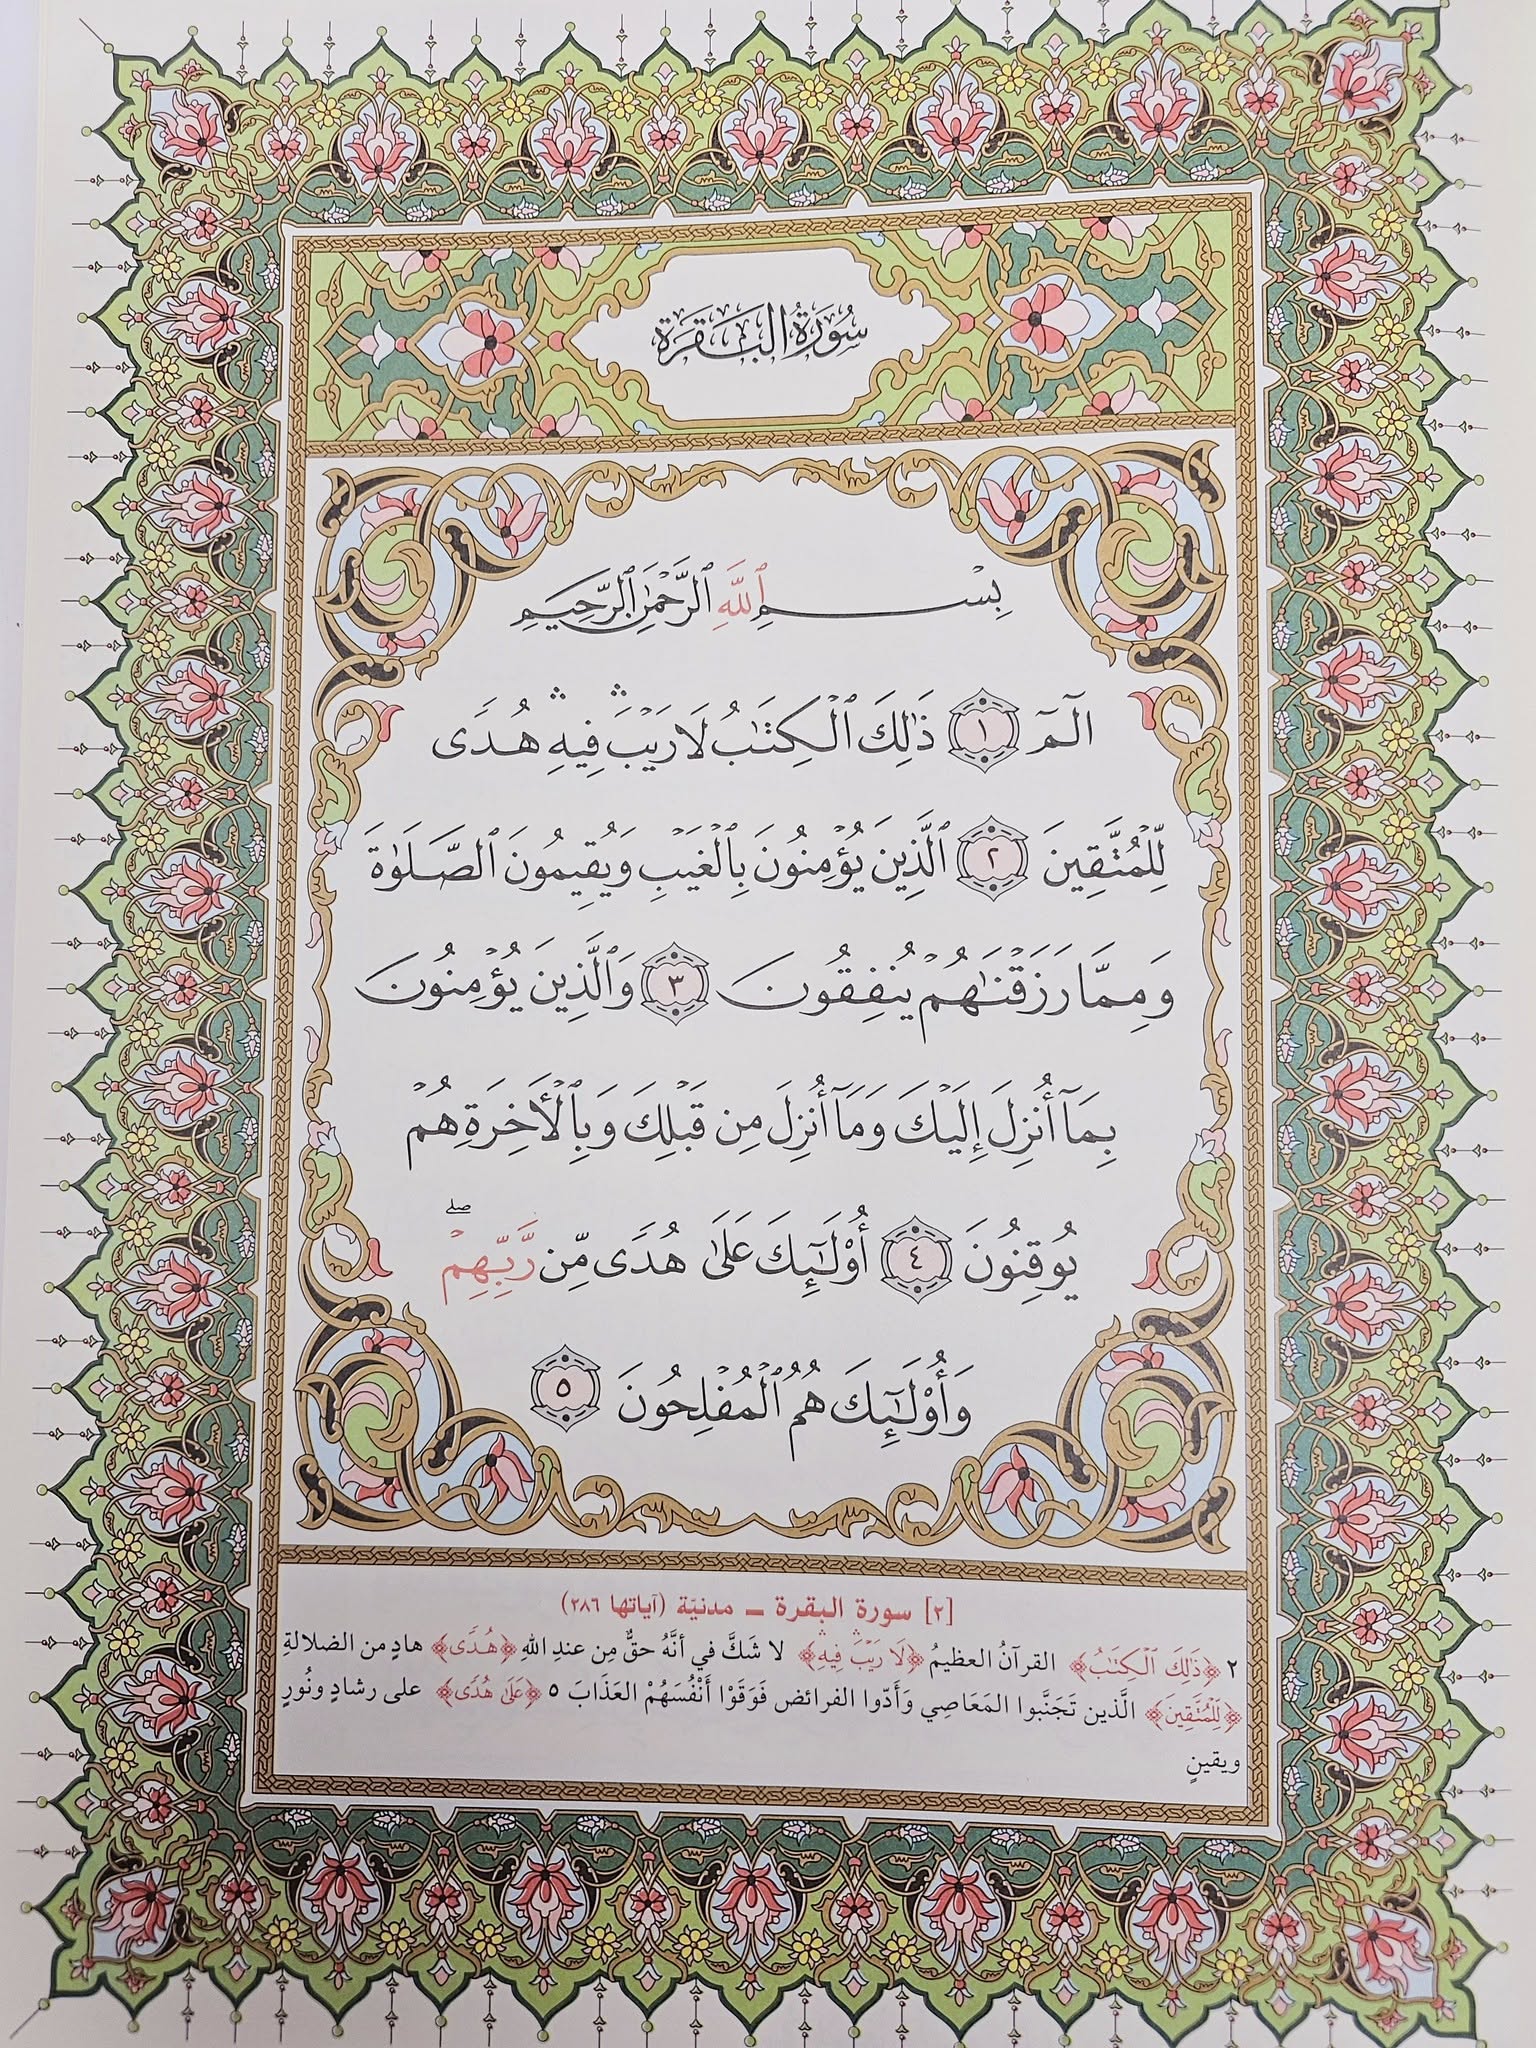 سُورَةُ البَقَرَةِ
بِسْمِ ٱللَّهِ ٱلرَّحْمَٰنِ ٱلرَّحِيمِ
الٓمٓ ١ ذَٰلِكَ ٱلْكِتَٰبُ لَا رَيْبَ ۛ فِيهِ ۛ هُدًى
لِّلْمُتَّقِينَ ٢ ٱلَّذِينَ يُؤْمِنُونَ بِٱلْغَيْبِ وَيُقِيمُونَ ٱلصَّلَوٰةَ
وَمِمَّا رَزَقْنَٰهُمْ يُنفِقُونَ ٣ وَٱلَّذِينَ يُؤْمِنُونَ
بِمَآ أُنزِلَ إِلَيْكَ وَمَآ أُنزِلَ مِن قَبْلِكَ وَبِٱلْأَخِرَةِ هُمْ
يُوقِنُونَ ٤ أُو۟لَٰٓئِكَ عَلَىٰ هُدًى مِّن رَّبِّهِمْ ۖ
وَأُو۟لَٰٓئِكَ هُمُ ٱلْمُفْلِحُونَ ٥
[٢] سورة البقرة ــ مدنيّة (آياتها ٢٨٦)
٢ ﴿ذَٰلِكَ ٱلْكِتَٰبُ﴾ القرآنُ العظيمُ ﴿لَا رَيْبَ ۛ فِيهِ ۛ﴾ لا شَكَّ في أنَّهُ حقٌّ مِن عندِ اللهِ ﴿هُدًى﴾ هادٍ من الضلالةِ
﴿لِّلْمُتَّقِينَ﴾ الَّذين تَجَنَّبوا المَعَاصِي وَأَدّوا الفرائض فَوَقَوْا أَنْفُسَهُمْ العَذَابَ ٥ ﴿عَلَىٰ هُدًى﴾ على رشادٍ ونُورٍ
ويقينٍ